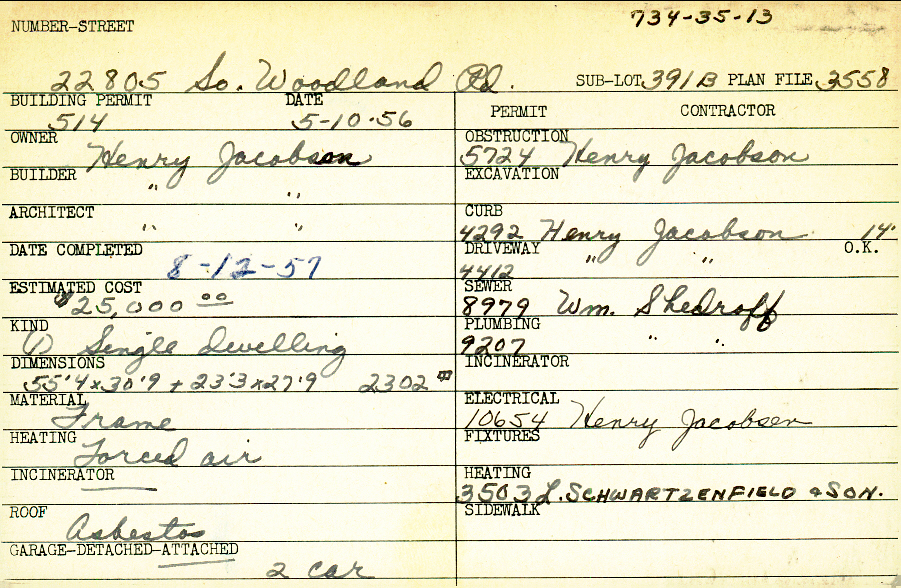 734-35-13
NUMBER-STREET
22805 So. Woodland Rd. SUB-LOT 391B PLAN FILE 3558
BUILDING PERMIT DATE
514 5-10-56
OWNER
Henry Jacobson
BUILDER
" "
ARCHITECT
" "
DATE COMPLETED
8-12-57
ESTIMATED COST
$25,000 00
KIND
(1) Single dwelling
DIMENSIONS
55'4x30'9 + 23'3x27'9 2302
MATERIAL
Frame
HEATING
Forced air
INCINERATOR
ROOF
Asbestos
GARAGE-DETACHED-ATTACHED
2 car
PERMIT CONTRACTOR
OBSTRUCTION
5724 Henry Jacobson
EXCAVATION
CURB
4292 Henry Jacobson 14'
DRIVEWAY " " O.K.
4412
SEWER
8979 Wm. Shedroff
PLUMBING
9207 " "
INCINERATOR
ELECTRICAL
10654 Henry Jacobsen
FIXTURES
HEATING
3503 L. SCHWARTZENFIELD & SON.
SIDEWALK